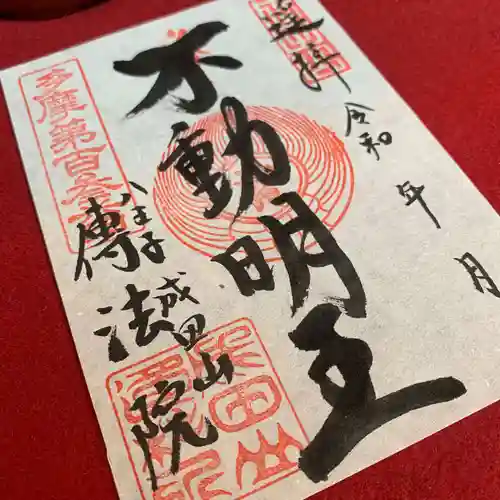 遥拝
令和 年 月
不動明王
多摩第百参
八王子
成田山
傳法院